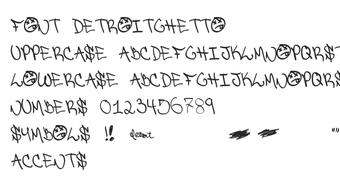 FONT DETROITGHETTO
UPPERCASE ABCDEFGHIJKLMNOPQRST
LOWERCASE ABCDEFGHIJKLMNOPQRS
NUMBERS 0123456789
SYMBOLS !! detroit "
ACCENTS